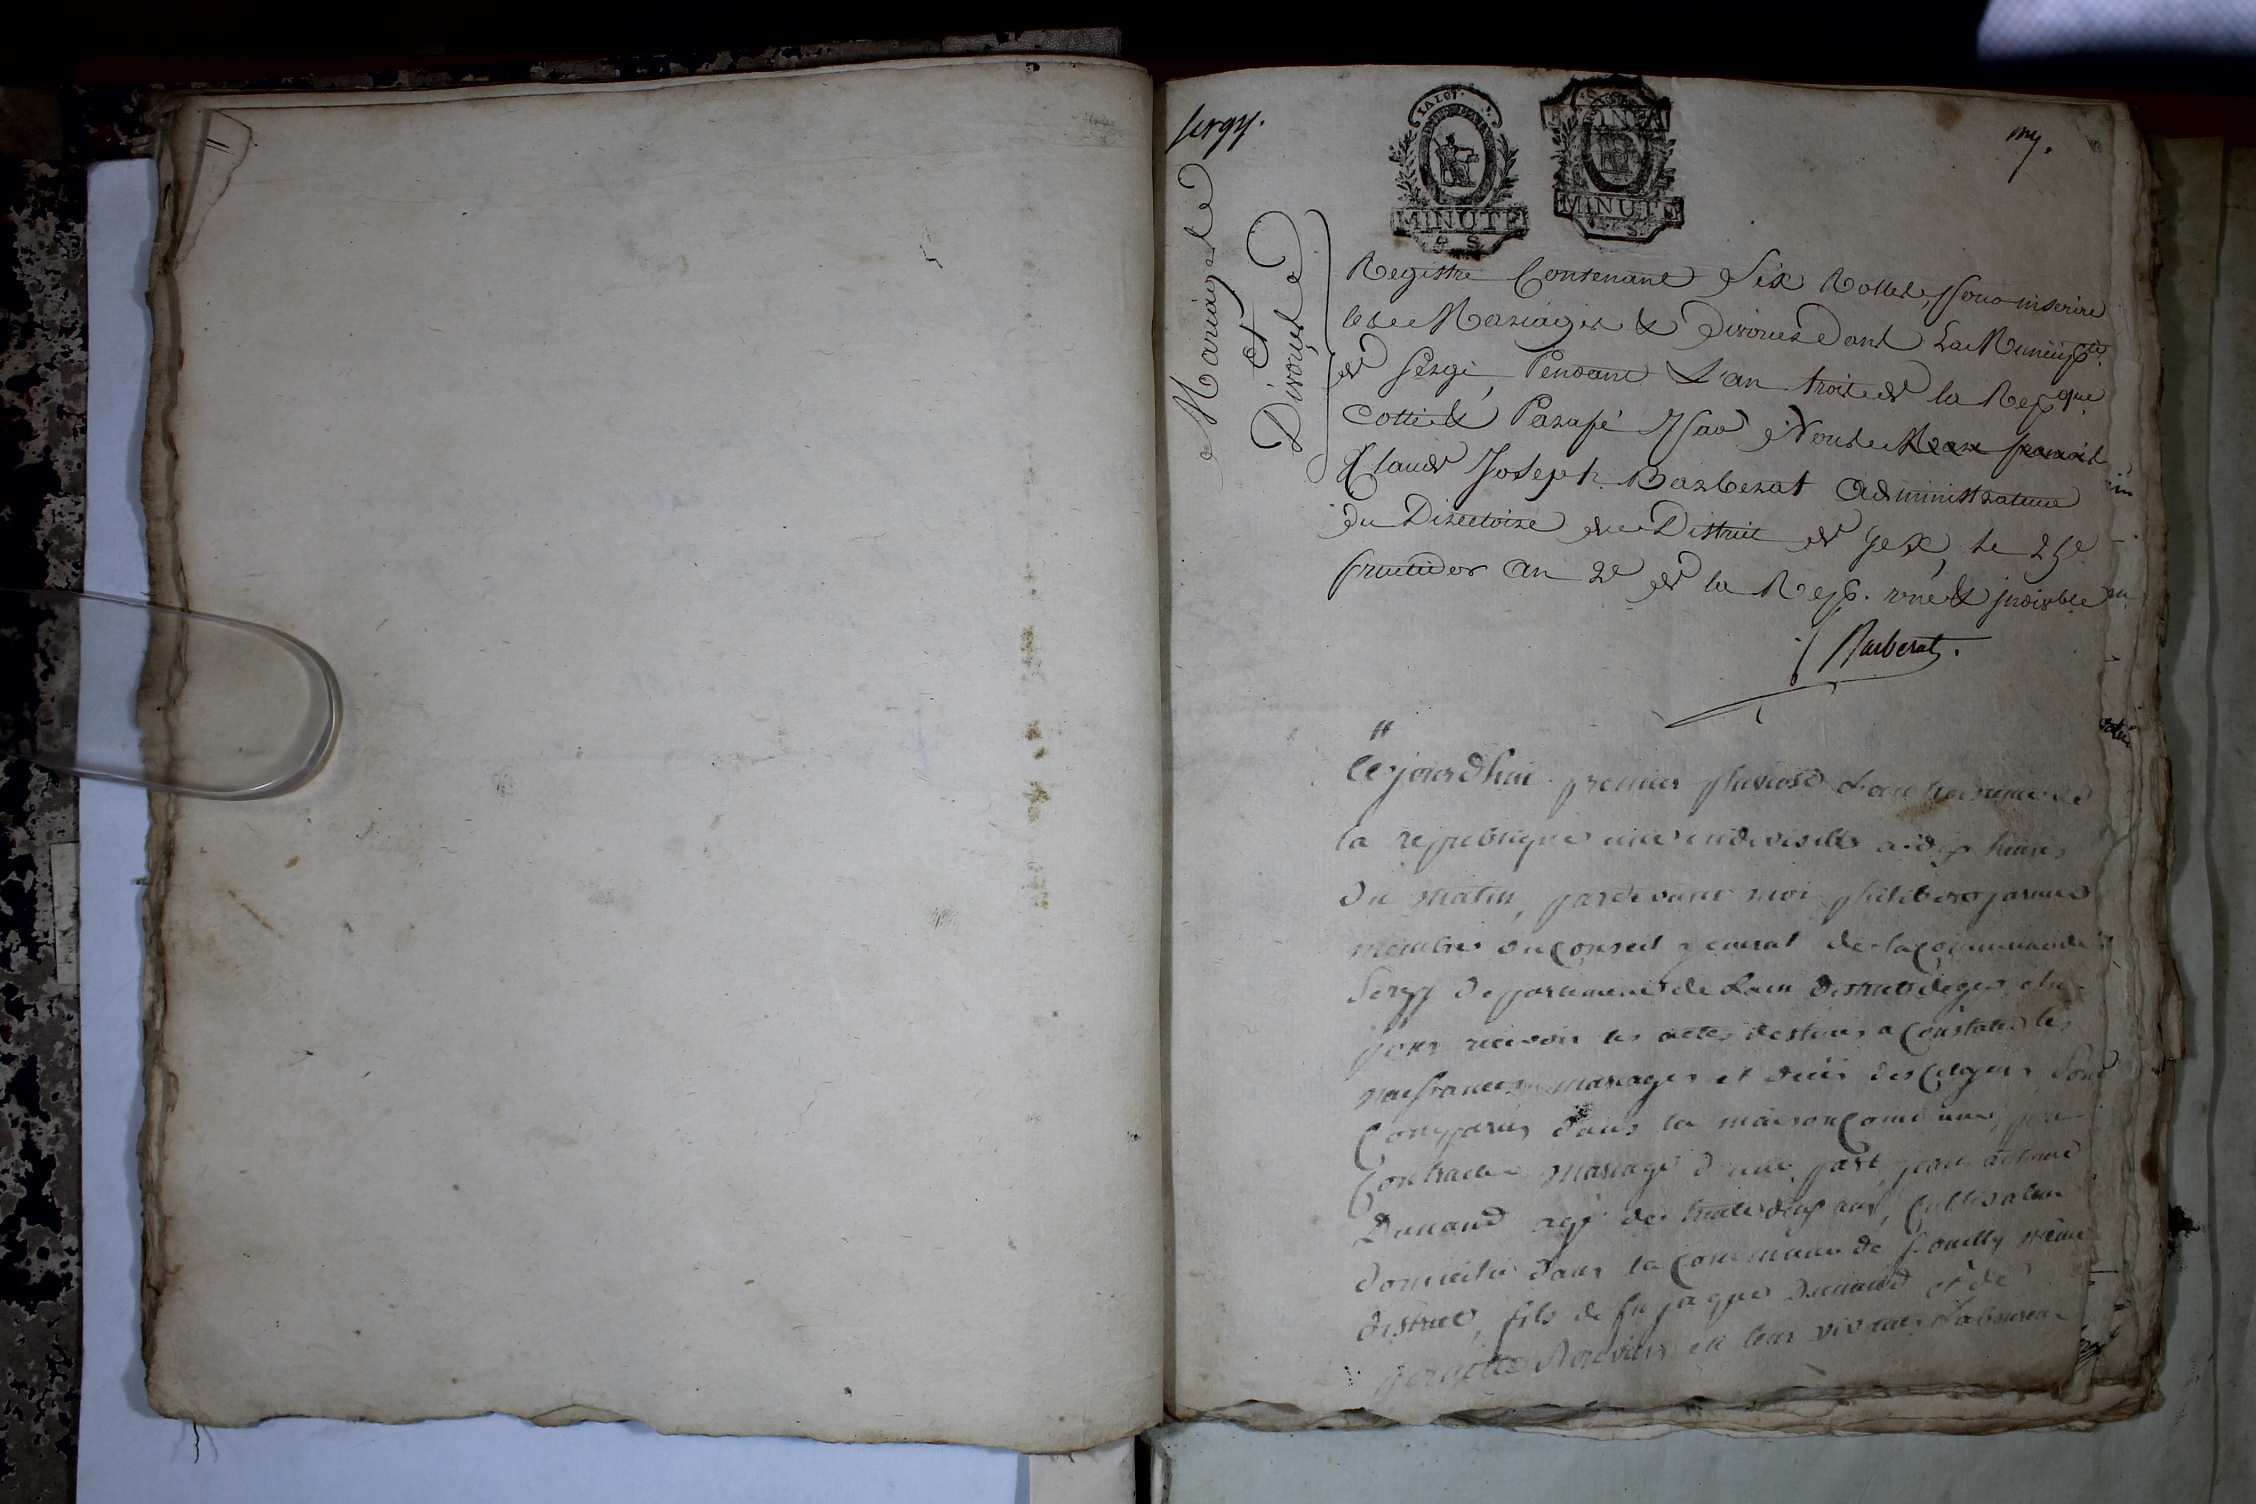 Sergy.
Mariages
Et
Divorces
LA LOI
MINUTE
4 S
MINUTE
Registre Contenant Six Rolles, Pour inscrire
les Mariages & Divorces dans La Municip.té
de Sergi, Pendant L'an trois de la Rep.que
Cotté & Parafé Par Nous
Claude Joseph Barberat Administrateur
du Directoire du District de Gex, le 25e
fructidor an 2e de la Rep. une & indivible
Barberat.
Cejourdhui premier pluviose L'an troisieme de
la republique une indivisible a dix heures
du matin, pardevant moi philibert
membre du Conseil general de la Commune de
Sergy departement de Lain district de gex elu
pour recevoir les actes destinés a Constater les
naissances mariages et decès des Citoyens Sont
Comparus dans la maison Commune, pour
Contracter mariage d'une part, jean antoine
Dunand agé de trente deux ans, Cultivateur
domicilié dans la Commune de pouilly même
district, fils de fu jaques Dunand et de
pernette en leur vivant Laboureur